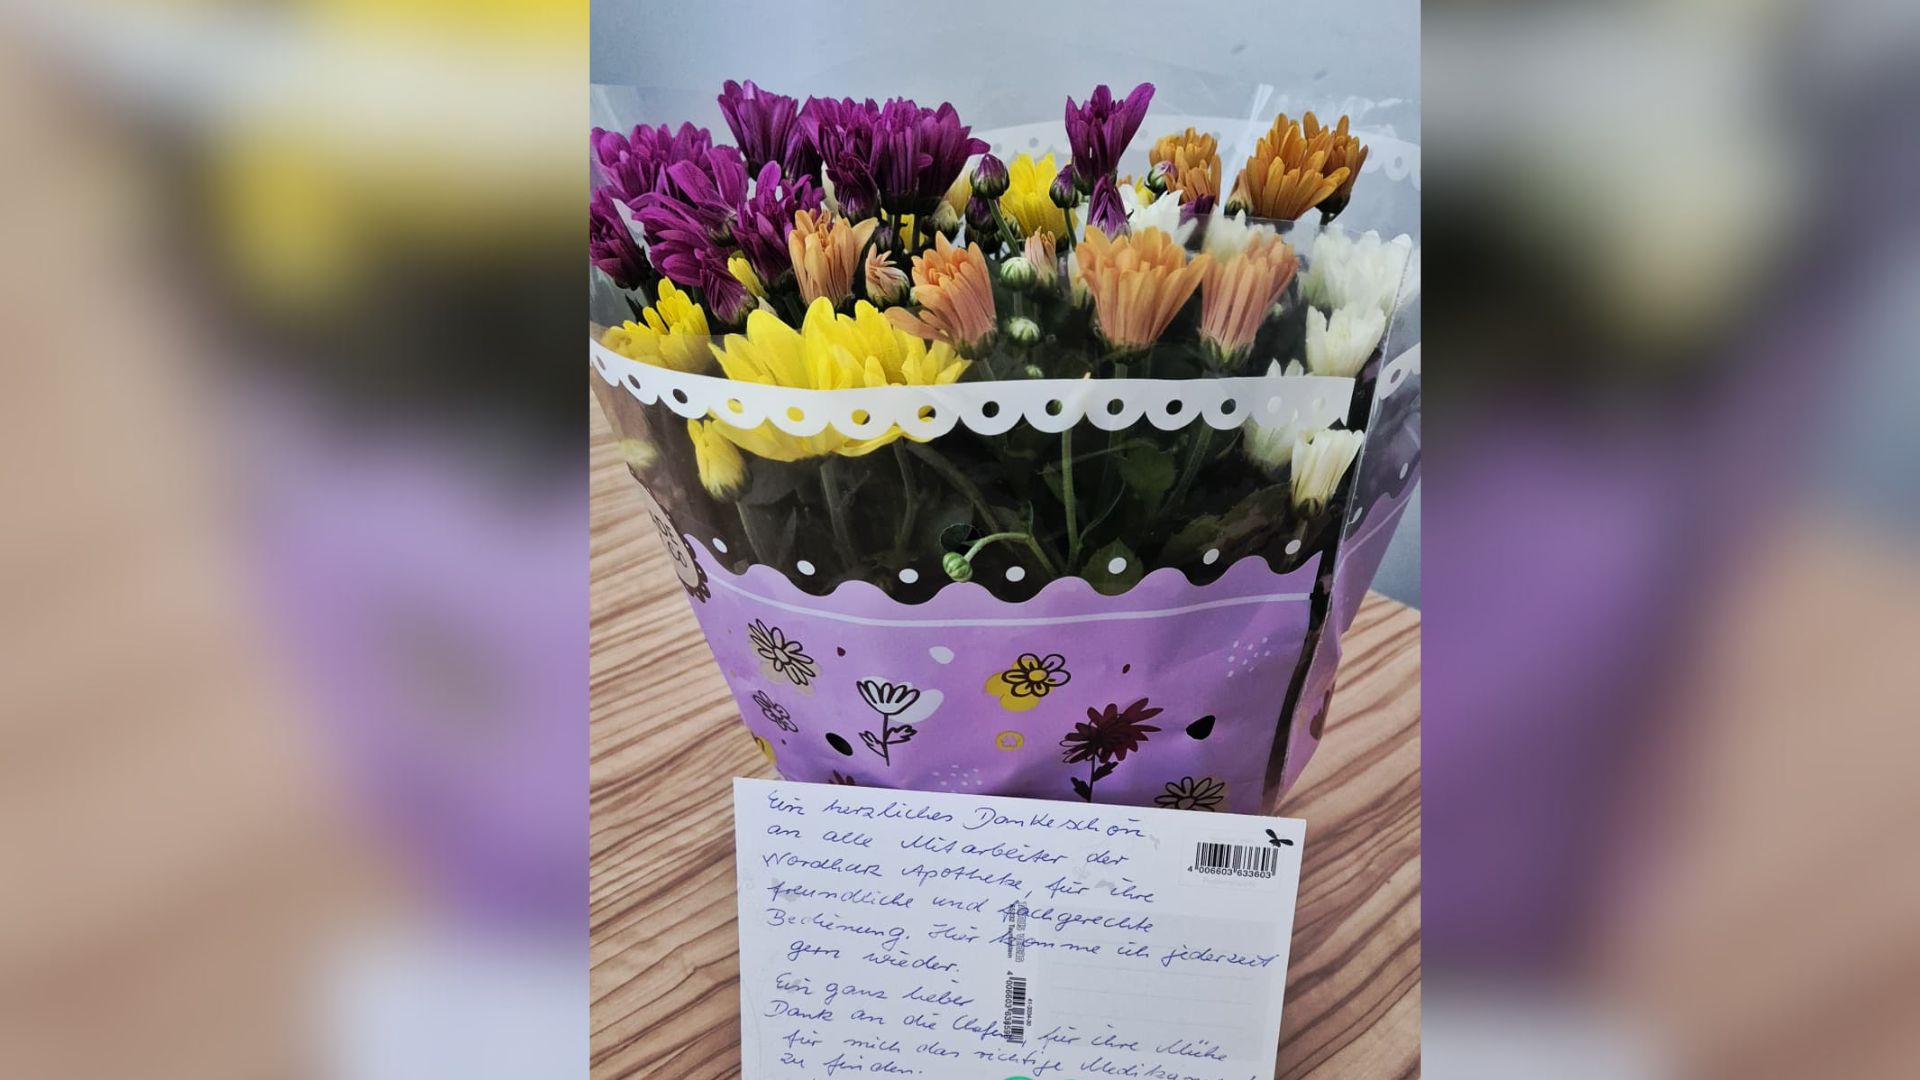 Ein herzliches Dankeschön
an alle Mitarbeiter der
Nordharz Apotheke, für ihre
freundliche und fachgerechte
Bedienung. Hier komme ich jederzeit
gern wieder.
Ein ganz lieber
Dank an die Chefin, für ihre Mühe
für mich das richtige
zu finden.
4 006603 633603